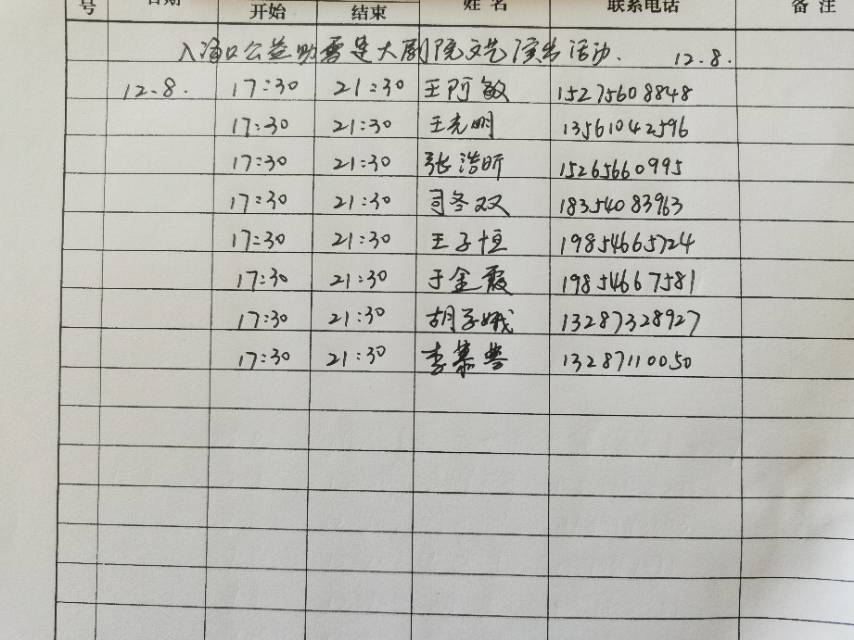 号 日期 开始 结束 姓名 联系电话 备注
入海口公益助雪莲大剧院文艺演出活动. 12.8.
12.8. 17:30 21:30 王阿敏 15275608848
17:30 21:30 王光明 13561042596
17:30 21:30 张浩昕 15265660995
17:30 21:30 司冬双 18354083963
17:30 21:30 王子恒 19854665724
17:30 21:30 于金霞 19854667581
17:30 21:30 胡子娥 13287328927
17:30 21:30 李慕 13287110050